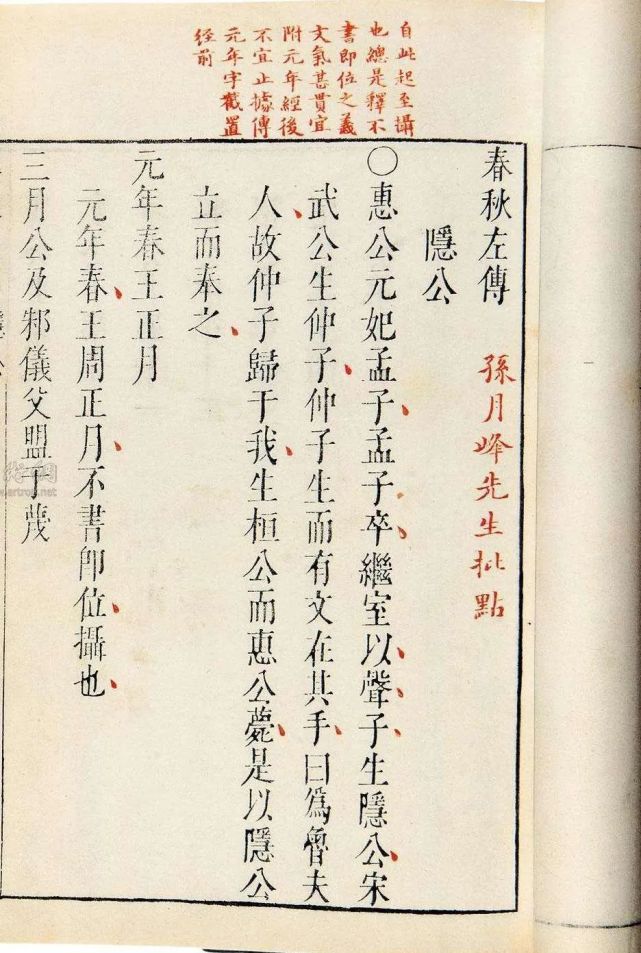 自此起至攝
也總是釋不
書即位之義
文氣甚貫宜
附元年經後
不宜止據傳
元年字截置
經前
春秋左傳
孫月峰先生批點
隱公
〇惠公元妃孟子孟子卒繼室以聲子生隱公宋
武公生仲子仲子生而有文在其手曰爲魯夫
人故仲子歸于我生桓公而惠公薨是以隱公
立而奉之
元年春王正月
元年春王周正月不書卽位攝也
三月公及邾儀父盟于蔑